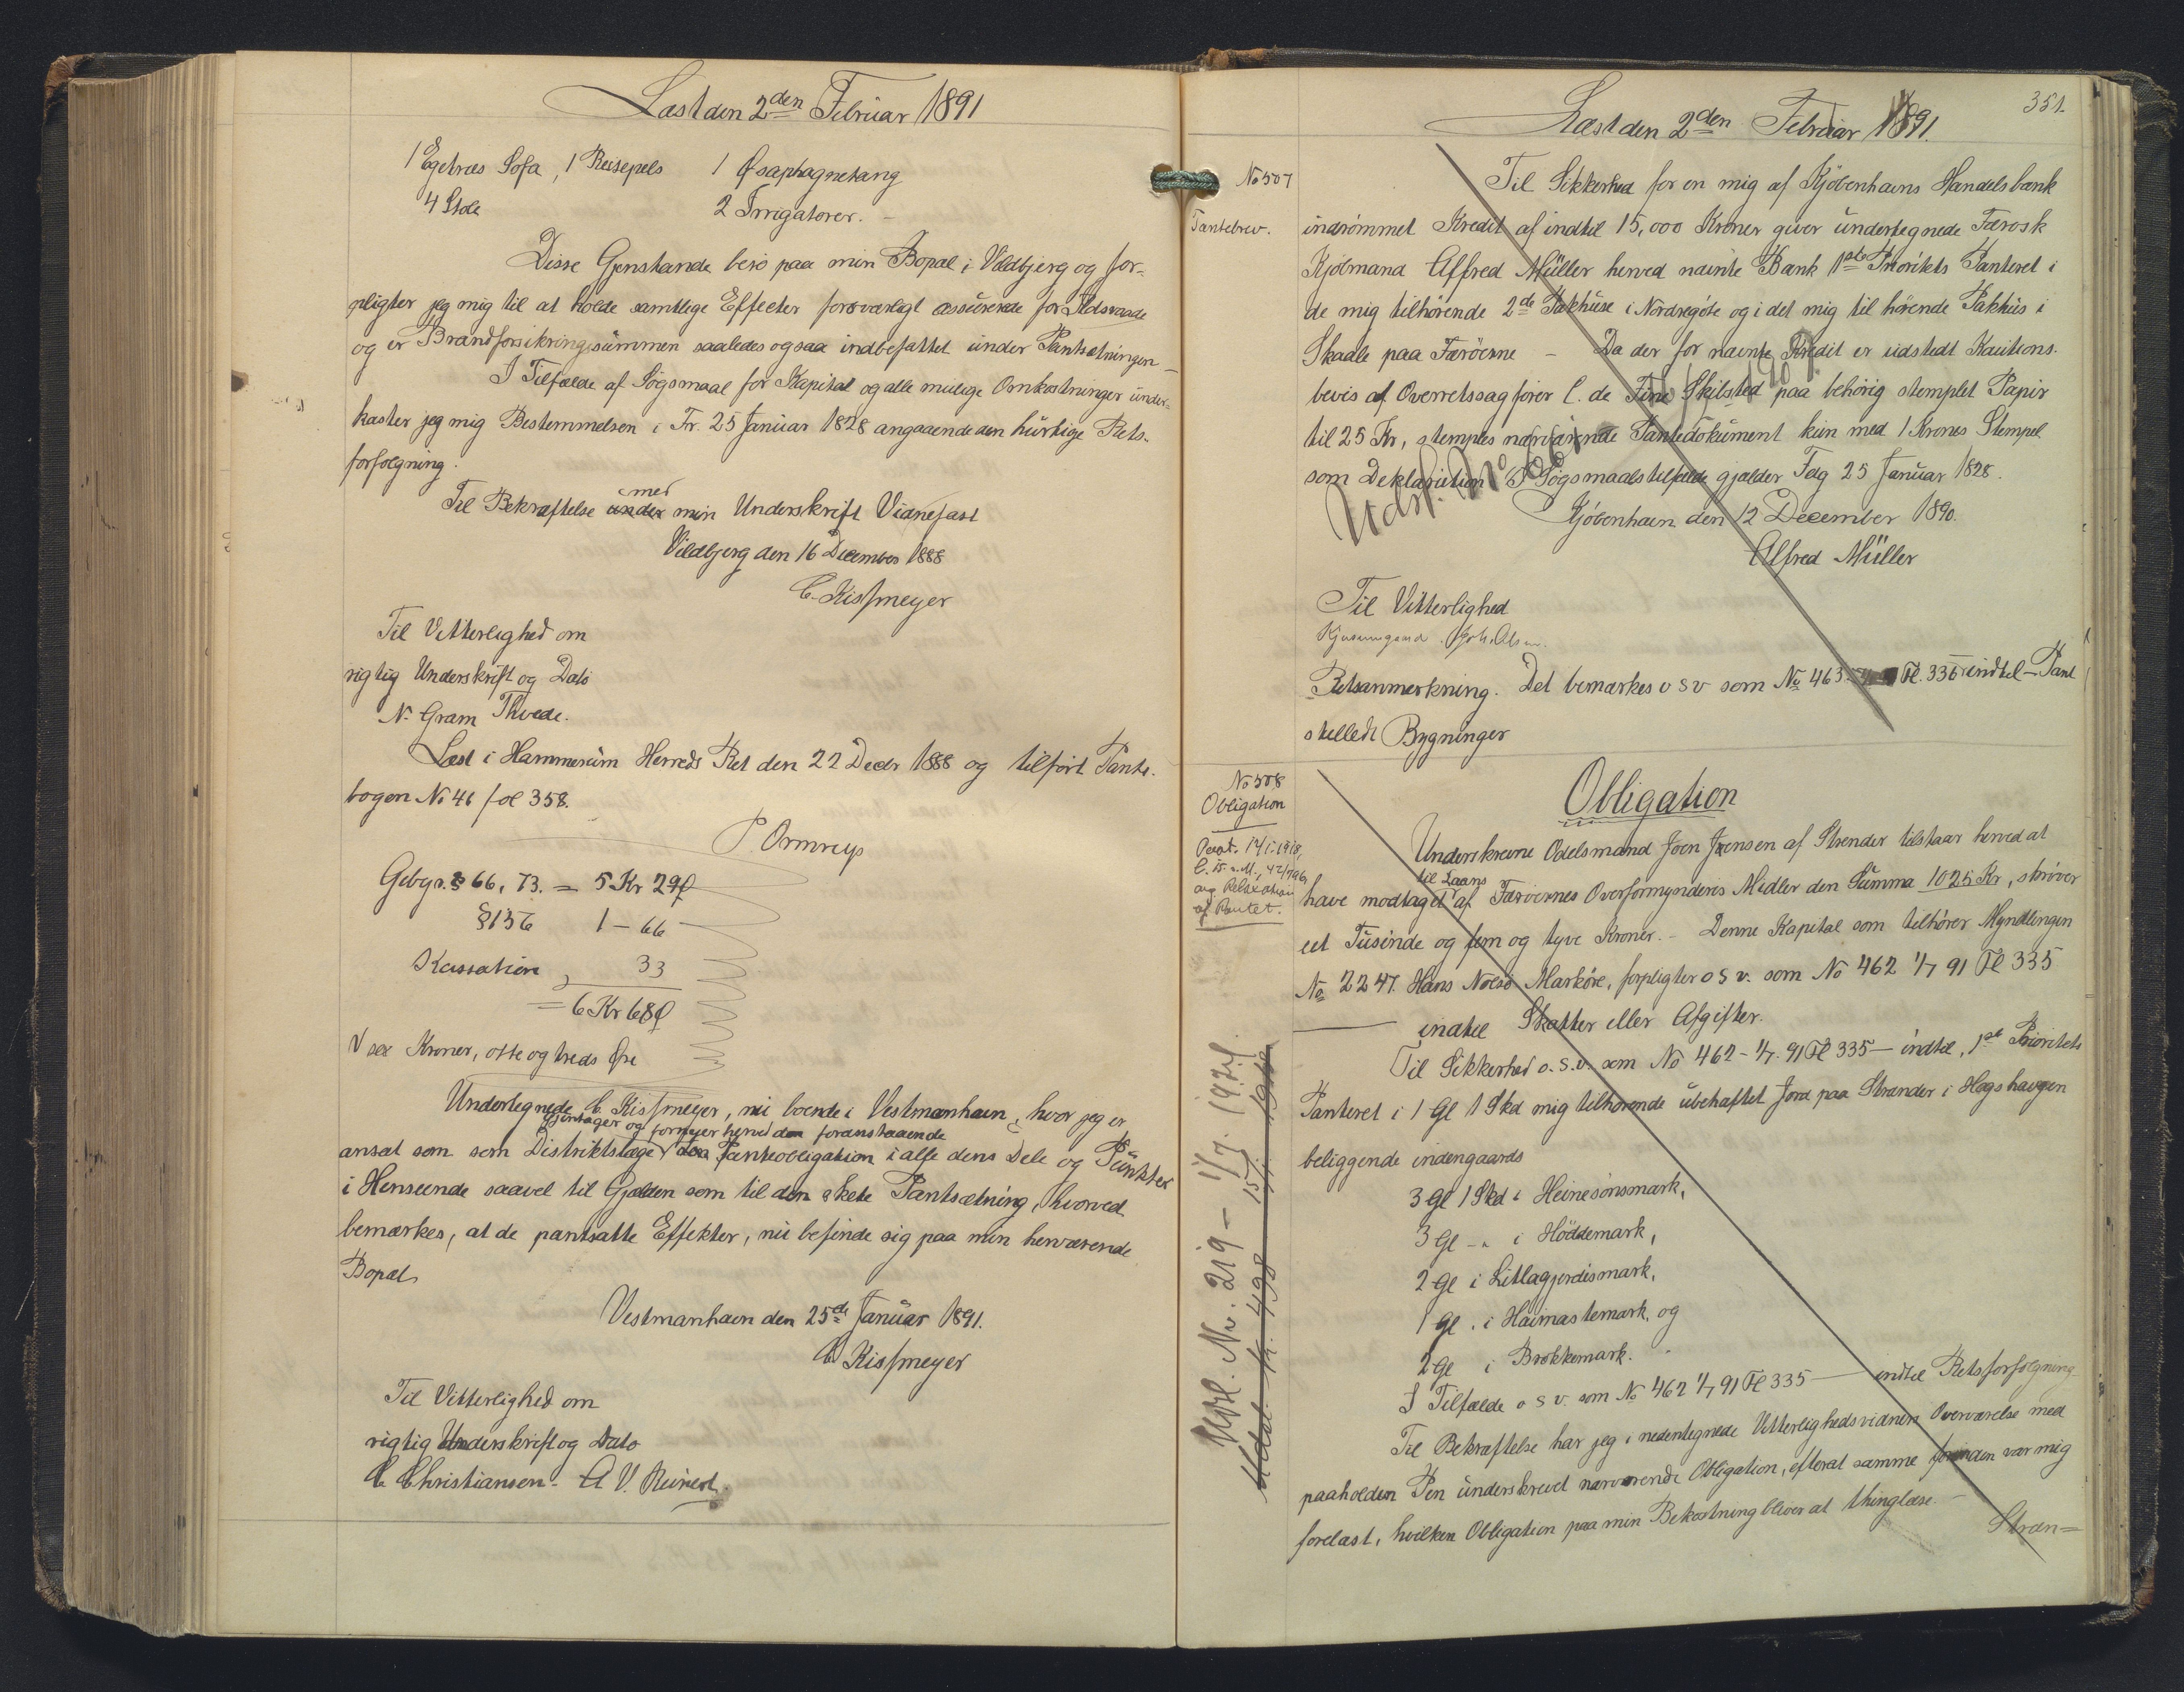 Læst den 2den Februar 1891
1 Egetræs Sofa, 1 Reisepels 1 Øsophagnetang
4 Stole 2 Irrigatorer.
Disse Genstande bero paa min Bopæl i Vildbjerg og for-
pligter jeg mig til at holde samtlige Effecter forsvarligt assurerede for Ildsvaade
og er Brandforsikringssummen saaledes ogsaa indbefattet under Pantsætningen -
I Tilfælde af Søgsmaal for Kapital og alle mulige Omkostninger under-
kaster jeg mig Bestemmelsen i Fr. 25 Januar 1828 angaaende den hurtige Rets-
forfølgning.
Til Bekræftelse under med min Underskrift Vidnefast
Vildbjerg den 16 December 1888
C. Kissmeyer
Til Vitterlighed om
rigtig Underskrift og Dato
N. Gram Thvede.
Læst i Hammerum Herreds Ret den 22 Decbr 1888 og tilført Pante-
bogen No 46 fol 358.
P Ormrup
Gebyr. § 66, 73. = 5 Kr 29 Ø
§ 136 1 - 66
Kassation, 33
= 6 Kr 68 Ø
sex Kroner, otte og treds Øre
Undertegnede C. Kissmeyer, nu boende i Vestmanhavn, hvor jeg er
gjentager og fornyer herved den foranstaaende
ansat som som Distriktslæge den Panteobligation i alle dens Dele og Punkter
i Henseende saavel til Gjælden som til den skete Pantsætning, hvorved
bemærkes, at de pantsatte Effekter, nu befinde sig paa min herværende
Bopæl,
Vestmanhavn den 25de Januar 1891.
C Kissmeyer
Til Vitterlighed om
rigtig Underskrift og Dato
C Christiansen - A V. Reinert.
351.
Læst den 2den Februar 1891.
No 507
Pantebrev.
Til Sikkerhed for en mig af Kjöbenhavns Handelsbank
indrömmet Kredit af indtil 15,000 Kroner giver undertegnede Færosk
Kjöbmand Alfred Müller herved nævnte Bank 1ste Prioritets Panteret i
de mig tilhörende 2de Pakhuse i Nordregöte og i det mig til hörende Pakhus i
Skaale paa Færöerne - Da der for nævnte Kredit er udstedt Kautions-
bevis af Overretssagförer C. de Fine Skibsted paa behörig stemplet Papir
til 25 Kr, stemples nærværende Pantedokument kun med 1 Krones Stempel
som Deklaration I Sögsmaalstilfælde gjælder Fdg 25 Januar 1828.
Kjöbenhavn den 12 December 1890.
Alfred Müller
Til Vitterlighed
Joh. Olsen.
Retsanmerkning. Det bemærkes o s v som No 463 Fl. 336 indtil - Pant
stillede Bygninger
No 508
Obligation
Obligation
Underskrevne Odelsmand Joen Joensen af Strender tilstaar herved at
til Laans
have modtaget af Færöernes Overformynderis Midler den Summa 1025 Kr, skriver
eet Tusinde og fem og tyve Kroner. - Denne Kapital som tilhörer Myndlingen
No 2247. Hans Nolsö Marköre, forpligter o s v. som No 462 1/7 91 Fl 335
indtil Skatter eller Afgifter.
Til Sikkerhed o. s. v. som No 462 - 1/7. 91 Fl 335 - indtil, 1ste Prioritets
Panteret i 1 Gl 1 Skd mig tilhörende ubehæftet Jord paa Strander i Högshaugen
beliggende indengaards
3 Gl 1 Skd i Heinesönsmark,
3 Gl - " i Höddemark,
2 Gl i Litlagjerdismark,
1 Gl. i Haimastemark, og
2 Gl i Brokkemark.
I Tilfælde o s v. som No 462 1/7 91 Fl 335 - indtil Retsforfölgning
Til Bekræftelse har jeg i nedentegnede Vitterlighedsvidners Overværelse med
paaholden Pen underskrevet nærværende Obligation, efterat samme forinden var mig
forelæst, hvilken Obligation paa min Bekostning bliver at thinglæse. -
Stran=
Qvat. 14/1. 1918,
ang Relaxation
af Pantet.
Udsl. Nr. 219 - 1/7. 1921.